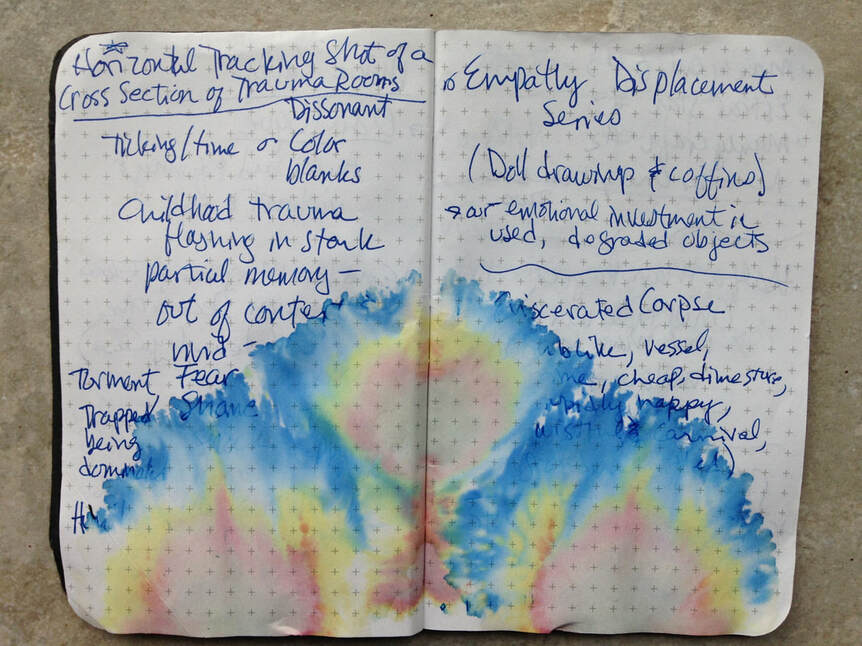 Horizontal Tracking Shot of a
Cross Section of Trauma Rooms
Dissonant
Ticking/time or Color
blanks
Childhood trauma
flashing in stark
partial memory —
out of
mid -
Torment Fear
Trapped Shame
being
Empathy Displacement
Series
(Doll drawings & coffins)
→ our emotional investment in
used, degraded objects
Corpse
like, vessel,
cheap, dimestore,
happy,
carnival,